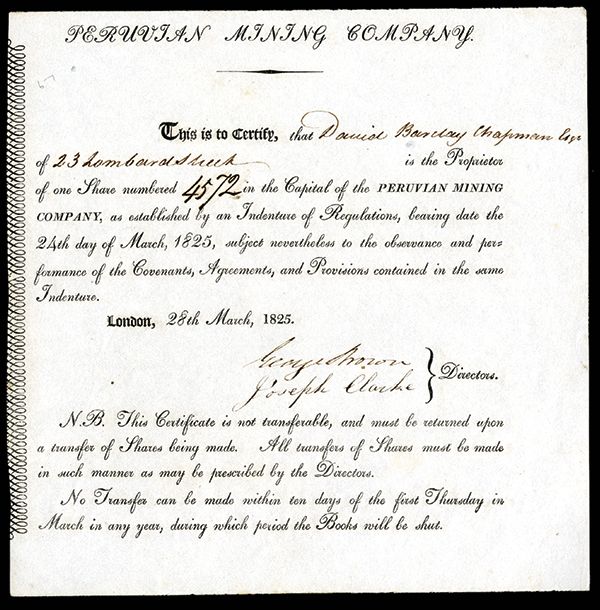 PERUVIAN MINING COMPANY.
This is to Certify, that David Barclay Chapman Esqr
of 23 Lombard Street is the Proprietor
of one Share numbered 4572 in the Capital of the PERUVIAN MINING
COMPANY, as established by an Indenture of Regulations, bearing date the
24th day of March, 1825, subject nevertheless to the observance and per-
formance of the Covenants, Agreements, and Provisions contained in the same
Indenture.
London, 28th March, 1825.
George Brown
Joseph Clarke } Directors.
N.B. This Certificate is not transferable, and must be returned upon
a transfer of Shares being made. All transfers of Shares must be made
in such manner as may be prescribed by the Directors.
No Transfer can be made within ten days of the first Thursday in
March in any year, during which period the Books will be shut.